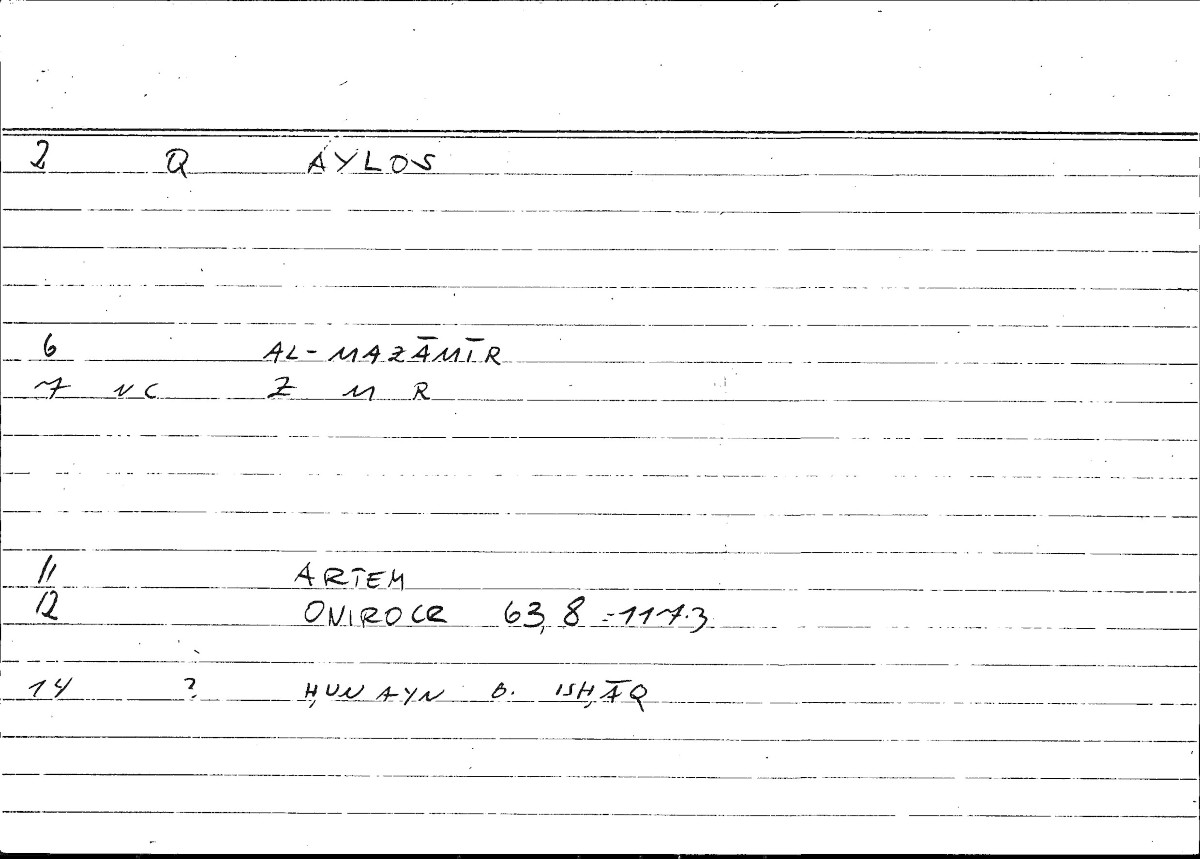 2 Q AYLOS
6 AL-MAZĀMĪR
7 NC Z M R
11 ARTEM
12 ONIROCR 63,8 -117.3
14 ? ḤUNAYN B. ISḤĀQ